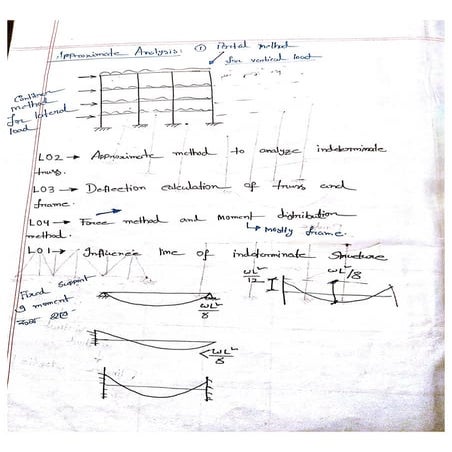 Approximate Analysis: ① Portal method
for vertical load
Cantilever
method
for lateral
load
LO2 → Approximate method to analyze indeterminate
truss.
LO3 → Deflection calculation of truss and
frame.
LO4 → Force method and moment distribution
method. ↳ mostly frame.
LO1 → Influence line of indeterminate Structure
Fixed support
moment
ωL²/12
ωL²/8
ωL²/8
ωL²/8